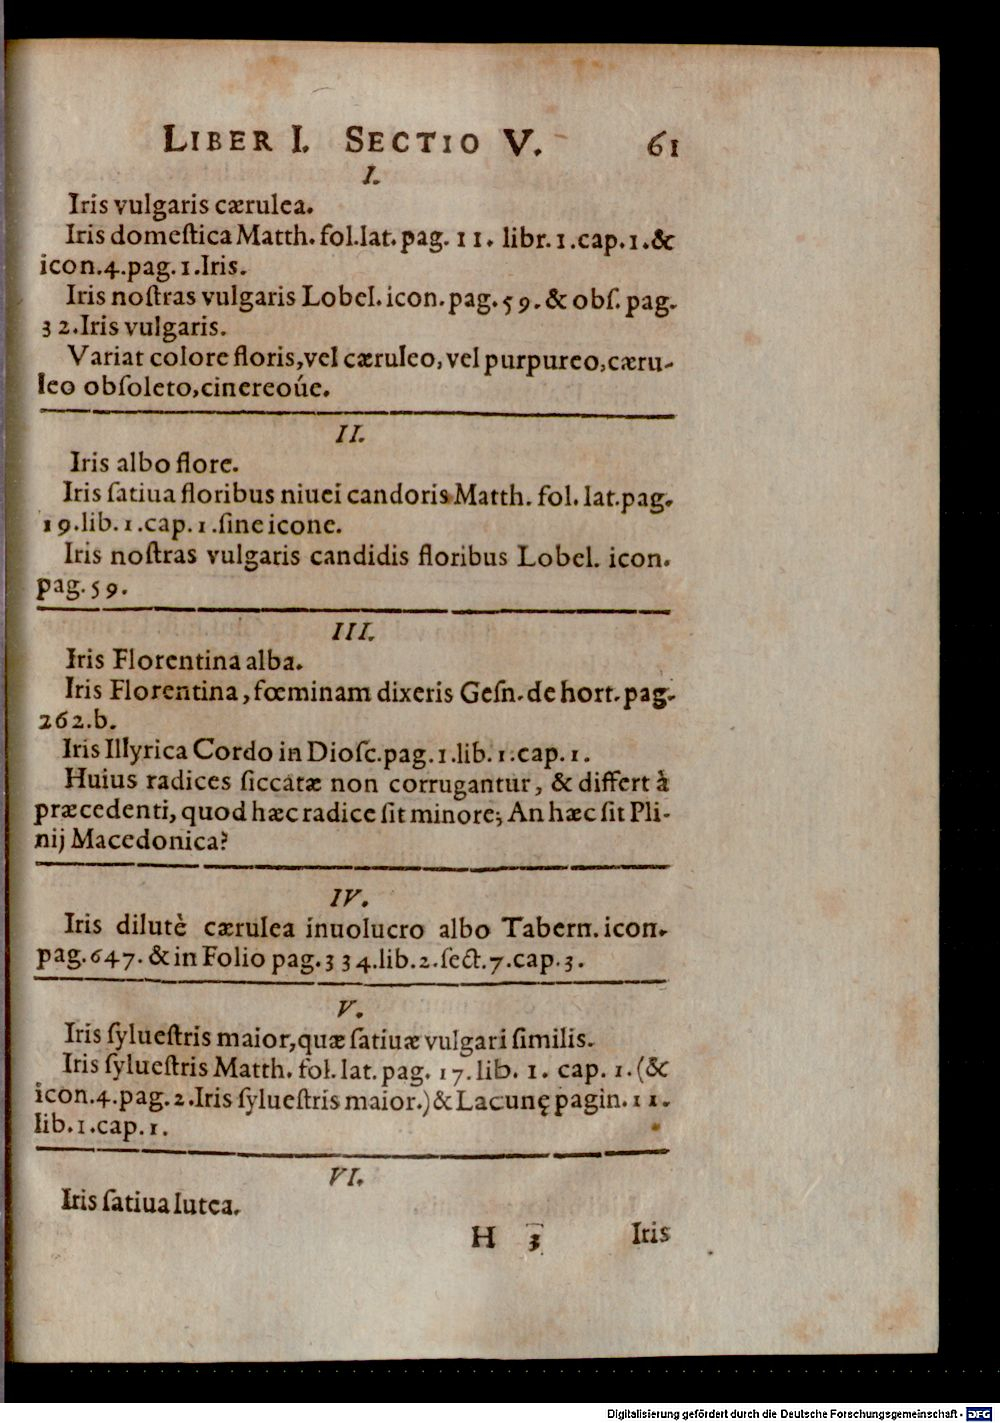 LIBER I. SECTIO V. 61
I.
Iris vulgaris cærulea.
Iris domeſtica Matth. fol.lat. pag. 11. libr. 1.cap.1.&
icon.4.pag.1.Iris.
Iris noſtras vulgaris Lobel.icon.pag.59.& obſ.pag.
32.Iris vulgaris.
Variat colore floris,vel cæruleo,vel purpureo,cæru-
leo obſoleto,cinereoúe.
II.
Iris albo flore.
Iris ſatiua floribus niuei candoris Matth. fol. lat.pag.
19.lib.1.cap.1.ſine icone.
Iris noſtras vulgaris candidis floribus Lobel. icon.
pag.59.
III.
Iris Florentina alba.
Iris Florentina, fœminam dixeris Geſn. de hort. pag.
262.b.
Iris Illyrica Cordo in Dioſc.pag.1.lib.1.cap.1.
Huius radices ſiccatæ non corrugantur, & differt à
præcedenti, quod hæc radice ſit minore; An hæc ſit Pli-
nij Macedonica?
IV.
Iris dilutè cærulea inuolucro albo Tabern. icon.
pag.647. & in Folio pag.334.lib.2.ſect.7.cap.3.
V.
Iris ſylueſtris maior,quæ ſatiuæ vulgari ſimilis.
Iris ſylueſtris Matth. fol. lat. pag. 17. lib. 1. cap. 1.(&
icon.4.pag.2.Iris ſylueſtris maior.)& Lacunę pagin.11.
lib.1.cap.1.
VI.
Iris ſatiua lutea.
H 3 Iris
Digitalisierung gefördert durch die Deutsche Forschungsgemeinschaft - DFG